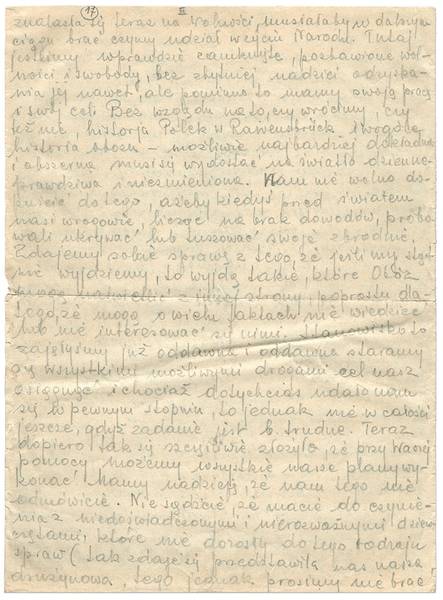 17 II
znalazła się teraz na wolności, musiałaby w dalszym
ciągu brać czynny udział w życiu Narodu. Tutaj
jesteśmy wprawdzie zamknięte, pozbawione wol-
ności i swobody, bez zbytniej nadziei odzyska-
nia jej nawet, ale pomimo to mamy swoją pracę
i swój cel! Bez względu na to, czy wrócimy, czy
też nie, historja Polek w Rawensbrück i wogóle
historia obozu – możliwie najbardziej dokładna
i obszerna musi się wydostać na światło dzienne
prawdziwa i niezmieniona. Nam nie wolno do-
puścić do tego, ażeby kiedyś przed światem
nasi wrogowie, licząc na brak dowodów, próbo-
wali ukrywać lub tuszować swoje zbrodnie.
Zdajemy sobie sprawę z tego, że jeśli my stąd
nie wyjdziemy, to wyjdą takie, które Obóz
mogą naświetlić z innej strony, poprostu dla-
tego, że mogą o wielu faktach nie wiedzieć
lub nie interesować się nimi. Stanowisko to
zajęłyśmy już oddawna i oddawna staramy
się wszystkimi możliwymi drogami cel nasz
osiągnąć i chociaż dotychczas udało nam
się to pewnym stopniu, to jednak nie w całości
jeszcze, gdyż zadanie jest b. trudne. Teraz
dopiero tak się szczęśliwie złożyło, że przy Waszej
pomocy możemy wszystkie nasze plany wy-
konać! Mamy nadzieję, że nam tego nie
odmówicie. Nie sądźcie, że macie do czynie-
nia z niedoświadczonymi i nierozważnymi dziew-
czętami, które nie dorosły do tego rodzaju
spraw (tak zdaje się przedstawiła nas nasza
drużynowa tego jednak prosimy nie brać